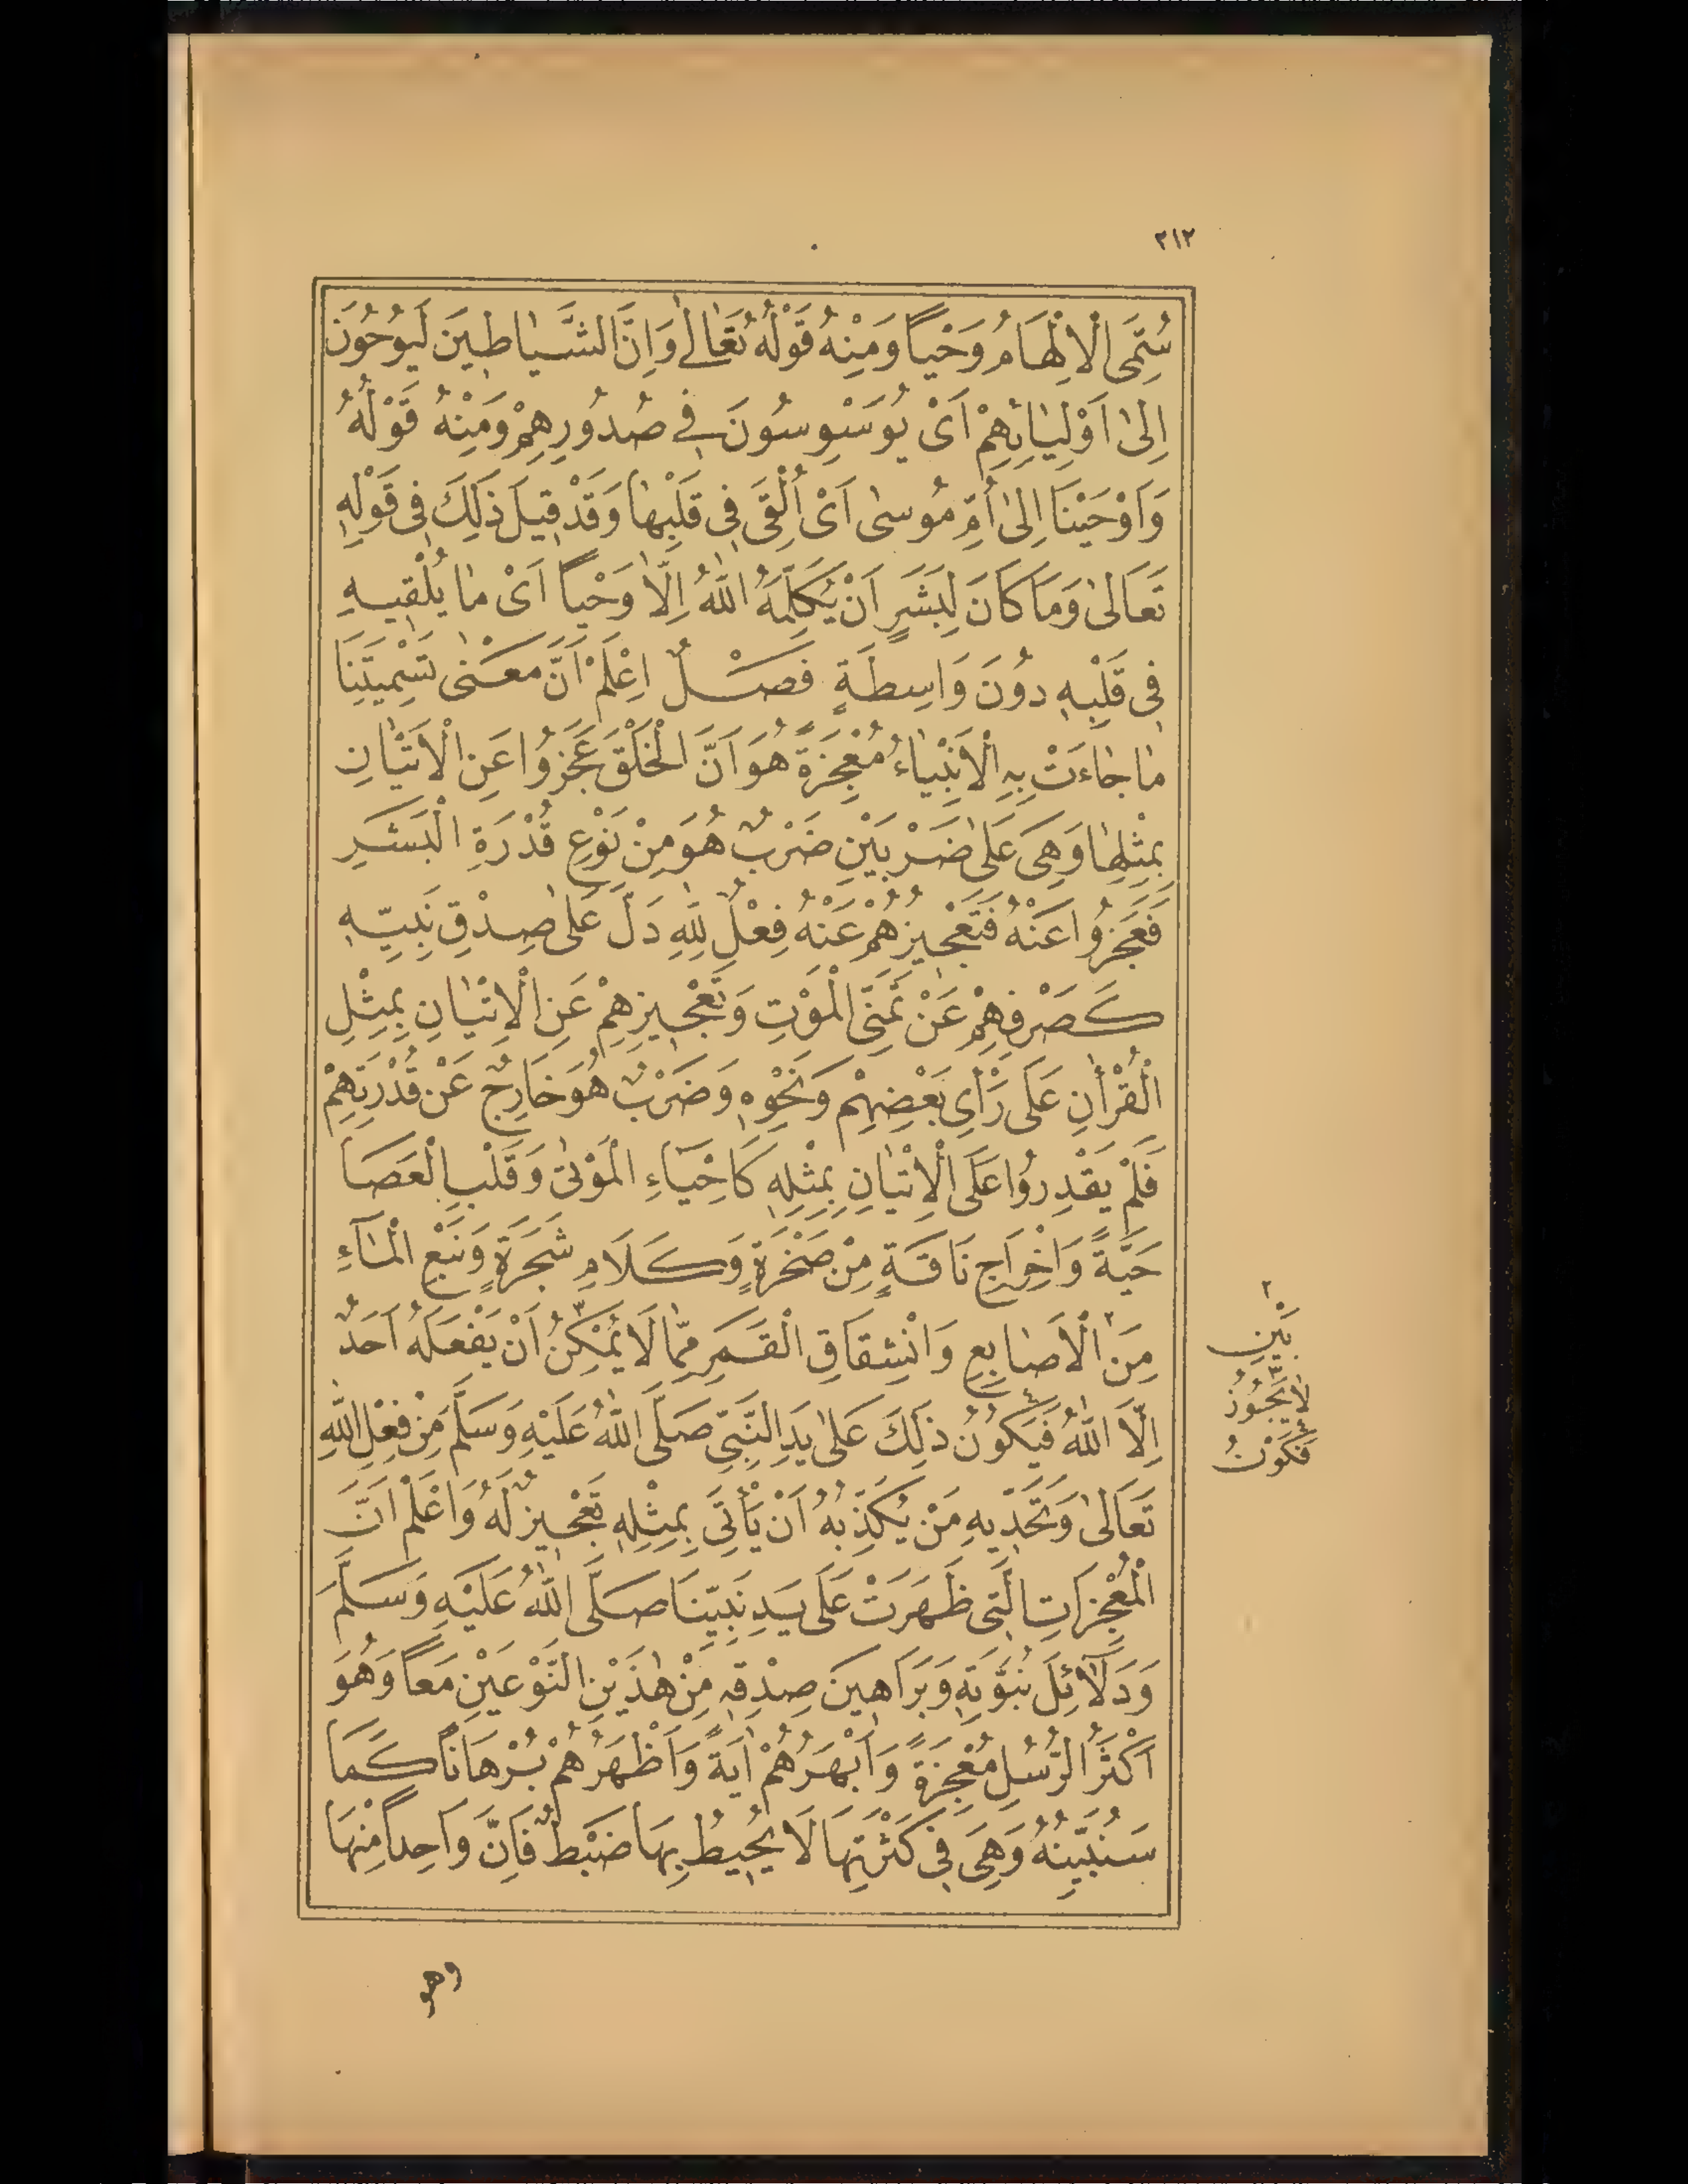 ٢١٢
سُمِّىَ الْاِلْهَامُ وَحْياً وَمِنْهُ قَوْلُهُ تَعَالٰى وَاِنَّ الشَّيَاطِينَ لَيُوحُونَ
اِلٰى اَوْلِيَائِهِمْ اَىْ يُوَسْوِسُونَ فِى صُدُورِهِمْ وَمِنْهُ قَوْلُهُ
وَاَوْحَيْنَا اِلٰى اُمِّ مُوسٰى اَىْ اُلْقِىَ فِى قَلْبِهَا وَقَدْ قِيلَ ذٰلِكَ فِى قَوْلِهِ
تَعَالٰى وَمَا كَانَ لِبَشَرٍ اَنْ يُكَلِّمَهُ اللّٰهُ اِلَّا وَحْياً اَىْ مَا يُلْقِيهِ
فِى قَلْبِهِ دُونَ وَاسِطَةٍ فَصْلٌ اِعْلَمْ اَنَّ مَعْنٰى تَسْمِيَتِنَا
مَا جَاءَتْ بِهِ الْاَنْبِيَاءُ مُعْجِزَةً هُوَ اَنَّ الْخَلْقَ عَجَزُوا عَنِ الْاِتْيَانِ
بِمِثْلِهَا وَهِىَ عَلٰى ضَرْبَيْنِ ضَرْبٌ هُوَ مِنْ نَوْعِ قُدْرَةِ الْبَشَرِ
فَعَجَزُوا عَنْهُ فَتَعْجِيزُهُمْ عَنْهُ فِعْلٌ لِلّٰهِ دَلَّ عَلٰى صِدْقِ نَبِيِّهِ
كَصَرْفِهِمْ عَنْ تَمَنِّى الْمَوْتِ وَتَعْجِيزِهِمْ عَنِ الْاِتْيَانِ بِمِثْلِ
الْقُرْاٰنِ عَلٰى رَأْىِ بَعْضِهِمْ وَنَحْوِهِ وَضَرْبٌ هُوَ خَارِجٌ عَنْ قُدْرَتِهِمْ
فَلَمْ يَقْدِرُوا عَلَى الْاِتْيَانِ بِمِثْلِهِ كَاِحْيَاءِ الْمَوْتٰى وَقَلْبِ الْعَصَا
حَيَّةً وَاِخْرَاجِ نَاقَةٍ مِنْ صَخْرَةٍ وَكَلَامِ شَجَرَةٍ وَنَبْعِ الْمَآءِ
مِنَ٢ الْاَصَابِعِ وَانْشِقَاقِ الْقَمَرِ مِمَّا لَا يُمْكِنُ٣ اَنْ يَفْعَلَهُ اَحَدٌ
اِلَّا اللّٰهُ فَيَكُونُ٤ ذٰلِكَ عَلٰى يَدِ النَّبِىِّ صَلَّى اللّٰهُ عَلَيْهِ وَسَلَّمَ مِنْ فِعْلِ اللّٰهِ
تَعَالٰى وَتَحَدِّيهِ مَنْ يُكَذِّبُهُ اَنْ يَأْتِىَ بِمِثْلِهِ تَعْجِيزٌ لَهُ وَاعْلَمْ اَنَّ
الْمُعْجِزَاتِ الَّتِى ظَهَرَتْ عَلٰى يَدِ نَبِيِّنَا صَلَّى اللّٰهُ عَلَيْهِ وَسَلَّمَ
وَدَلَائِلَ نُبُوَّتِهِ وَبَرَاهِينَ صِدْقِهِ مِنْ هٰذَيْنِ النَّوْعَيْنِ مَعاً وَهُوَ
اَكْثَرُ الرُّسُلِ مُعْجِزَةً وَاَبْهَرُهُمْ اٰيَةً وَاَظْهَرُهُمْ بُرْهَاناً كَمَا
سَنُبَيِّنُهُ وَهِىَ فِى كَثْرَتِهَا لَا يُحِيطُ بِهَا ضَبْطٌ فَاِنَّ وَاحِداً مِنْهَا
٢
بَيْنِ
٣
لَا يَجُوزُ
٤
فَكَوْنُ
وهو